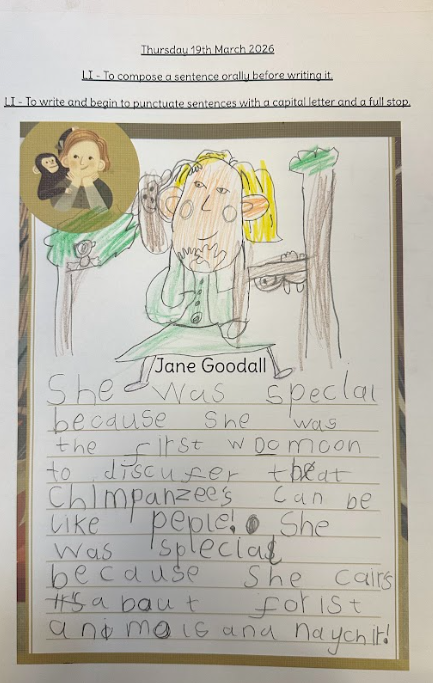 Thursday 19th March 2026
LI - To compose a sentence orally before writing it.
LI - To write and begin to punctuate sentences with a capital letter and a full stop.
Jane Goodall
She was special
because she was
the first woomoon
to discufer that
Chimpanzee's can be
like peple! She
was splecial
because she cairs
abaut forist
animals and naychir!